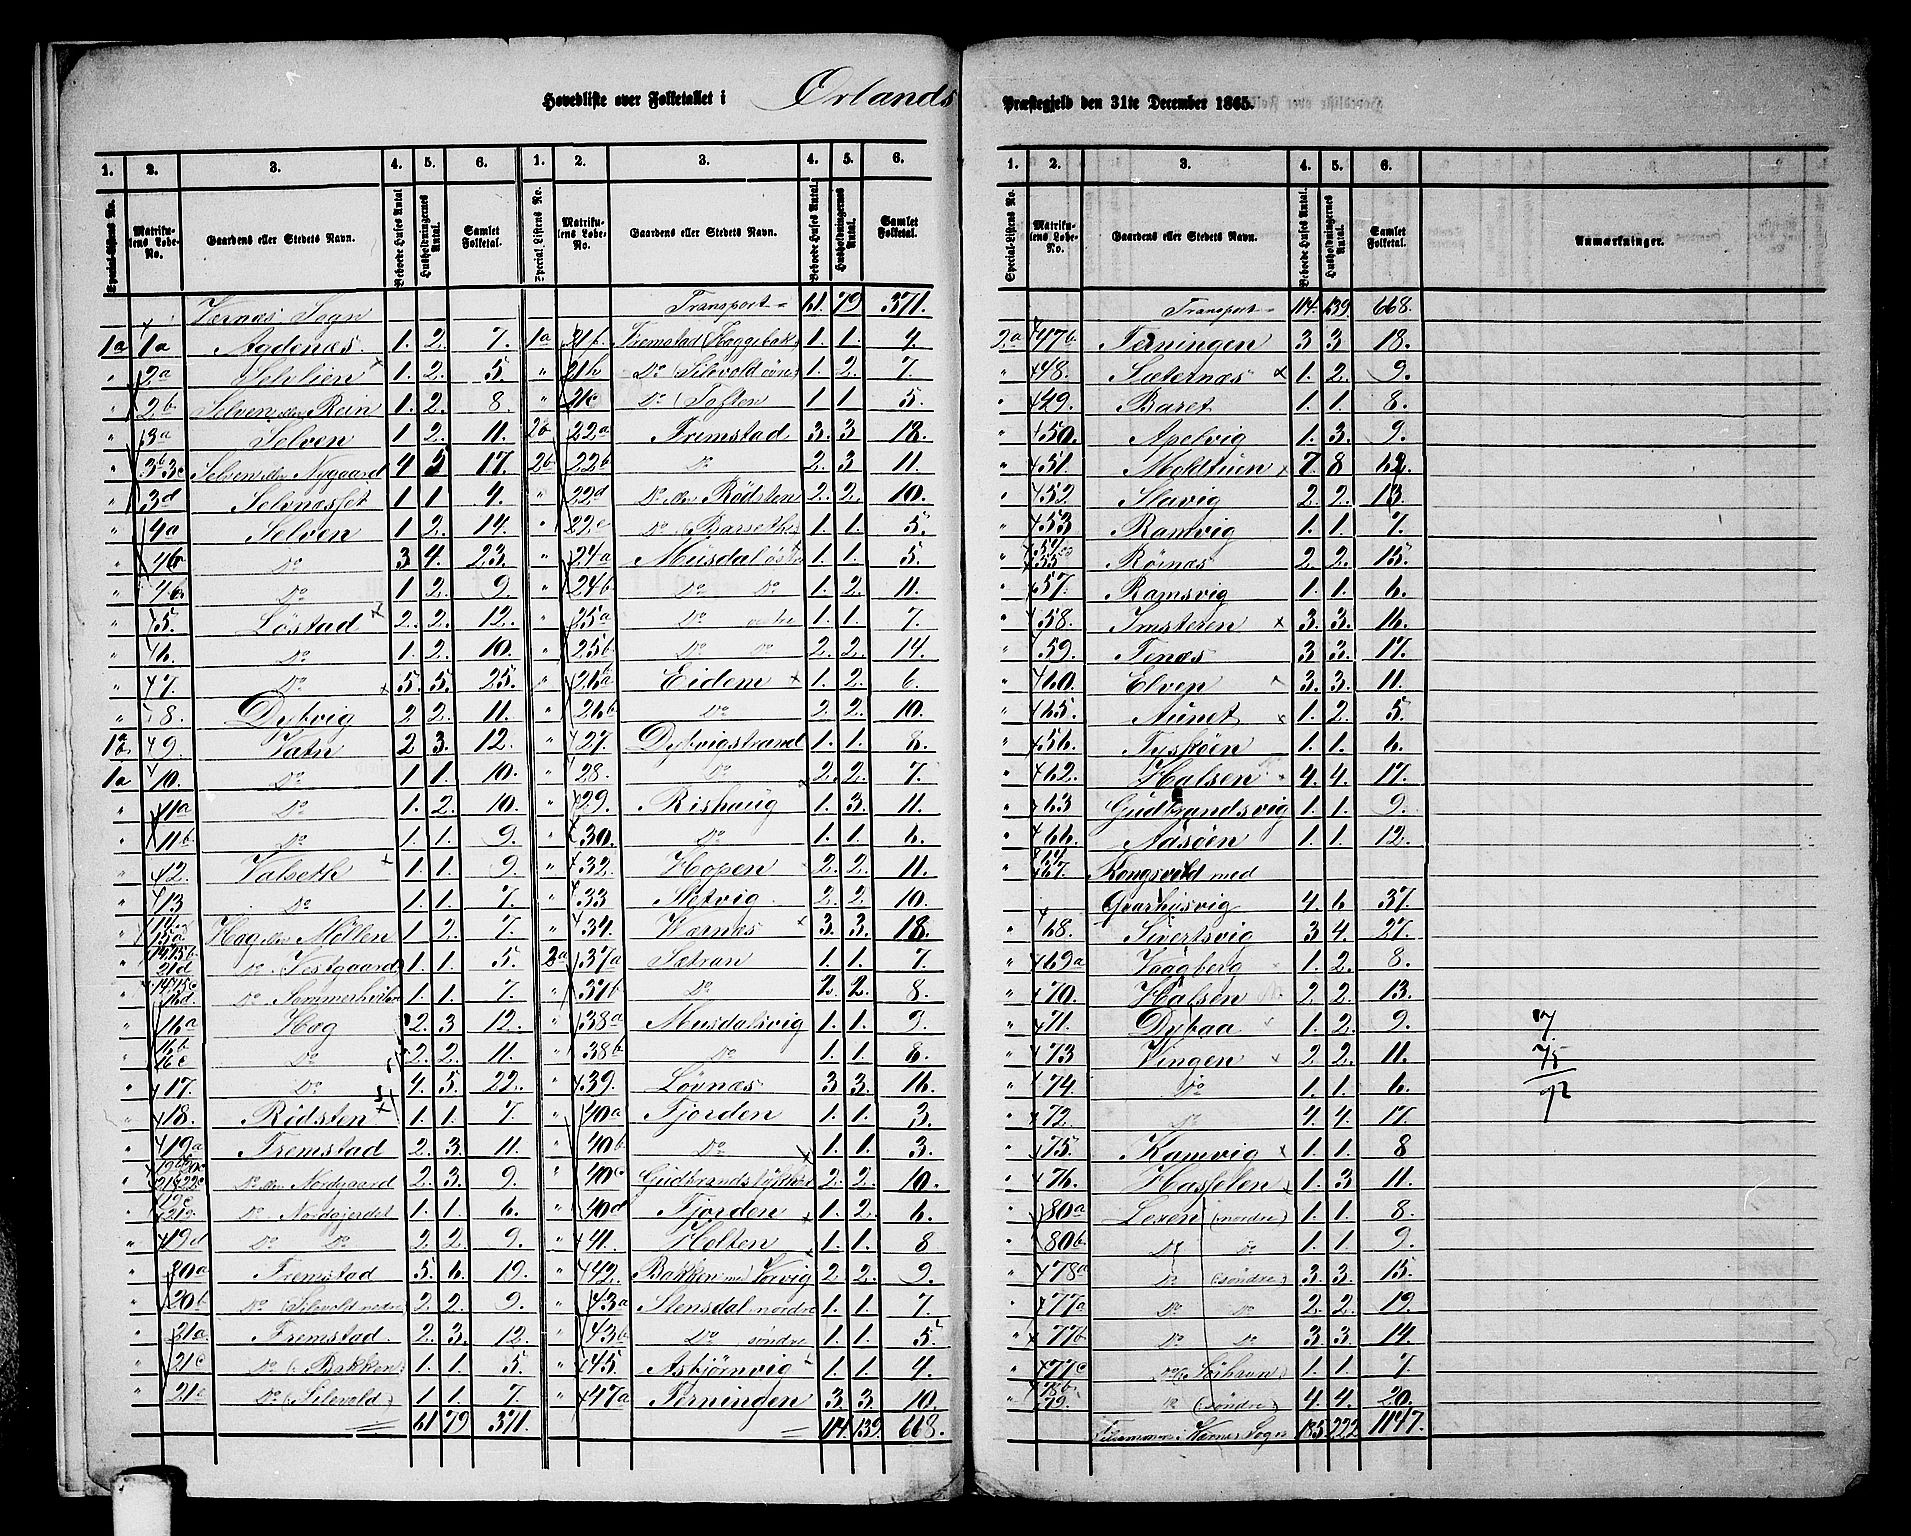 Hovedliste over Folketallet i Ørlands Præstegjeld den 31te December 1865.
1. 2. 3. 4. 5. 6. 1. 2. 3. 4. 5. 6.
Special-Listens No. Matrikulens Løbe-No. Gaardens eller Stedets Navn. Beboede Huses Antal. Husholdningernes Antal. Samlet Folketal. Special-Listens No. Matrikulens Løbe-No. Gaardens eller Stedets Navn. Beboede Huses Antal. Husholdningernes Antal. Samlet Folketal.
Værnæs Sogn Transport 61. 79 371.
1a 1a Agdenæs. 1. 2. 7. 1a 21f. Fremstad (Hoggebak) 1. 1. 4.
" 2a Selvlien 1. 2. 5. " 21h Do (Silevold øvre) 1. 2. 7.
" 2b Selven eller Rein 1. 2 8. " Do (Toften 1 1 5.
" 3a Selven 1 2. 11. 2b 22a Fremstad 3. 3 18.
" 3b 3c Selven eller Nygaard 4 5 17. 2b 22b Do 2. 3 11.
" 3d Selvnæsset 1 1 4. " 22d Do eller Rødsten 2. 2. 10.
" 4a Selven 1 2. 14. " 22e Do (Barseth) 1. 1. 5.
" 4b Do 3 4. 23. " 24a Musdal østre 1. 1. 5.
" Do 1 2. 9. " 24b Do Do 1. 2 11.
" 5. Løstad 2. 2. 12. " 25a Do vestre 1. 1. 7.
" 6. Do 1. 2. 10. " 25b Do Do 2. 2. 14.
" 7. Do 5. 5. 25. " 26a Eidem 1. 2 6.
" 8. Dybvig 2 2. 11. " 26b Do 2. 2. 10.
1b 9. Vatn 2 3. 12. " 27. Dybvigstrand 1. 1. 8.
1a 10. Do 1 1. 10. " 28. Do 2. 2. 7.
" 11a Do 1. 2. 10. " 29. Rishaug 1. 3. 11.
" 11b Do 1. 1. 9. " 30. Do 1. 1. 6.
" 12. Valseth 1. 1. 9. " 32. Hopen 2. 2. 11.
" 13 Do 1. 1. 7. " 33 Sletvig. 2. 2. 10.
" 15a Høg eller Møllen 1. 2. 7. " 34. Værnæs 3. 3. 18.
" 21d Do (Vestgaard) 1. 1. 5. 2a 37a Sætran 1. 1. 7.
" 16d. Do Sommerhvile 1. 1. 7. " 37b Do 2. 2. 8.
" 16a Høg 2. 3 12. " 38a Musdalsvig 1. 1. 9.
" 16b Do 2. 2. 11. " 38b Do 1. 1. 8.
" 17. Do 4. 5. 22. " 39. Løvnæs 3. 3. 16.
" 18. Ridsten 1. 1. 7. " 40a Fjorden 1. 1. 3.
" 19a Fremstad 2. 3. 11. " 40b Do 1. 1. 3.
" Do eller Nordgaard 2. 3. 9. " 40c 2 2. 10.
" Do Nordgjerdet 1. 1. 6. " 40d Fjorden 1. 2. 6.
" 19d Do Do 2. 2. 9. " 41. Holten 1. 1. 8
" 20a Fremstad 5. 6. 19. " 42. Bakken med Vorvig 2. 2. 9.
" 20b Do (Silevold nedre 2. 2. 9. " 43a Stensdal nordre 1. 1. 7.
" 21a Fremstad 2. 3. 12. " 43b Do søndre 1. 1. 5.
" 21c Do (Bakken) 1. 1. 5. " 45. Asbjørnvig 1. 1. 4.
" 21e Do (Silevold) 1 1. 7. " 47a Terningen 3. 3. 10.
61 79 371. 114. 139. 668.
1. 2. 3. 4. 5. 6.
Special-Listens No. Matrikulens Løbe-No. Gaardens eller Stedets Navn. Beboede Huses Antal. Husholdningernes Antal. Samlet Folketal. Anmærkninger.
Transport 114. 139. 668.
2a 47b Terningen 3 3 18.
" 48. Sæternæs 1. 2. 9.
" 49. Baret 1. 1. 8.
" 50. Apelvig 1. 3. 9.
" 51. Moldtuen 7. 8 62.
" 52. Slavig 2. 2. 13.
" 53 Ramvig 1. 1. 7.
" 55 Rømæs 2. 2. 15.
" 57. Ramsvig 1. 1. 6.
" 58. Imsteren 3. 3. 16.
" 59. Tenæs 3 3. 17.
" 60. Elven 3. 3. 11.
" 65. Aunet 1. 2. 5.
" 56. Tyskøen 1. 1. 6.
" 62. Halsen 4. 4. 17.
" 63 Gudbrandsvig 1. 1. 9.
" 66. Aasøen 1. 1. 12.
" 67. Kongsvold med
Qvarhusvig 4. 6. 37.
" 68. Sivertsvig 3 4. 27.
" 69a Vaagberg 1. 2. 8.
" 70. Halsen 2. 2. 13.
" 71. Dybaa 1. 2. 9. 17.
" 73 Vingen 2. 2. 11. 75
" 74. Do 1. 1. 6. 92
" 72. Do 4. 4. 17.
" 75. Kamvig 1. 1. 8
" 76. Hasselen 1. 3 11.
" 80a Lexen (nordre) 1. 1. 8.
" 80b Do Do 1. 1. 9.
" 78a Do (søndre) 3. 3. 15.
" 77a Do Do 2. 2. 19.
" 77b Do Do 3. 3. 14.
" 77c Do 1. 1. 7.
" 79. Do (søndre) 4. 4. 20.
Tilsammen Værnes Sogn 185 222 1147.